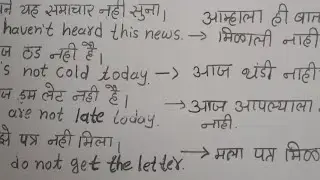 ने यह समाचार नहीं सुना। आम्हाला ही बात
haven't heard this news. → मिळाली नाही
ज ठंड नहीं है।
s not cold today. → आज थंडी नाही
ज हम लेट नहीं है।
are not late today. → आज आपल्याला
नाही.
पत्र नहीं मिला।
do not get the letter. → मला पत्र मिळ